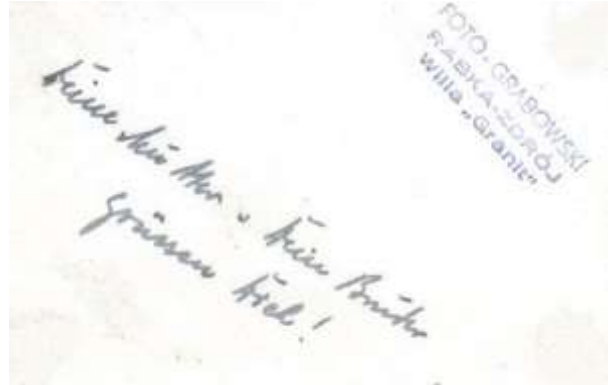 FOTO-GRABOWSKI
RABKA-ZDRÓJ
Willa „Granit"
Deine Mutter u. Dein Bruder
grüssen Dich!